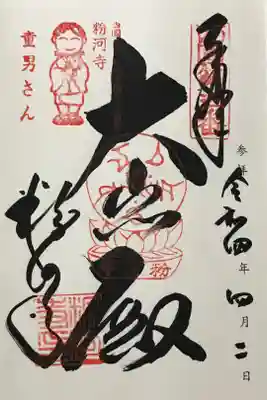 奉拝
参拝 令和四年四月二日
大悲殿
粉河寺
粉河寺
童男さん
粉